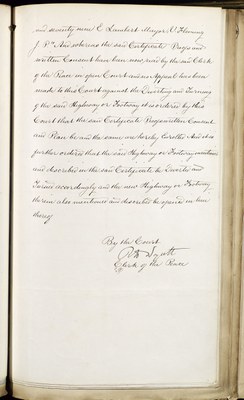 and seventy nine E Lambert Mayor R Fleming
J. P.s And whereas the said Certificate Proposal
written Consent have been now read by the said Clerk
of the Peace in open Court and no Appeal has been
made to this Court against the Diverting and Turning
of the said Highway or Footway it is ordered by this
Court that the said Certificate Proposal written Consent
and Plan be and the same are hereby Enrolled And it is
further ordered that the said Highway or Footway mentioned
and described in the said Certificate be diverted and
Turned accordingly and the new Highway or Footway
therein also mentioned and described be opened in lieu
thereof
By the Court
Wyatt
Clerk of the Peace